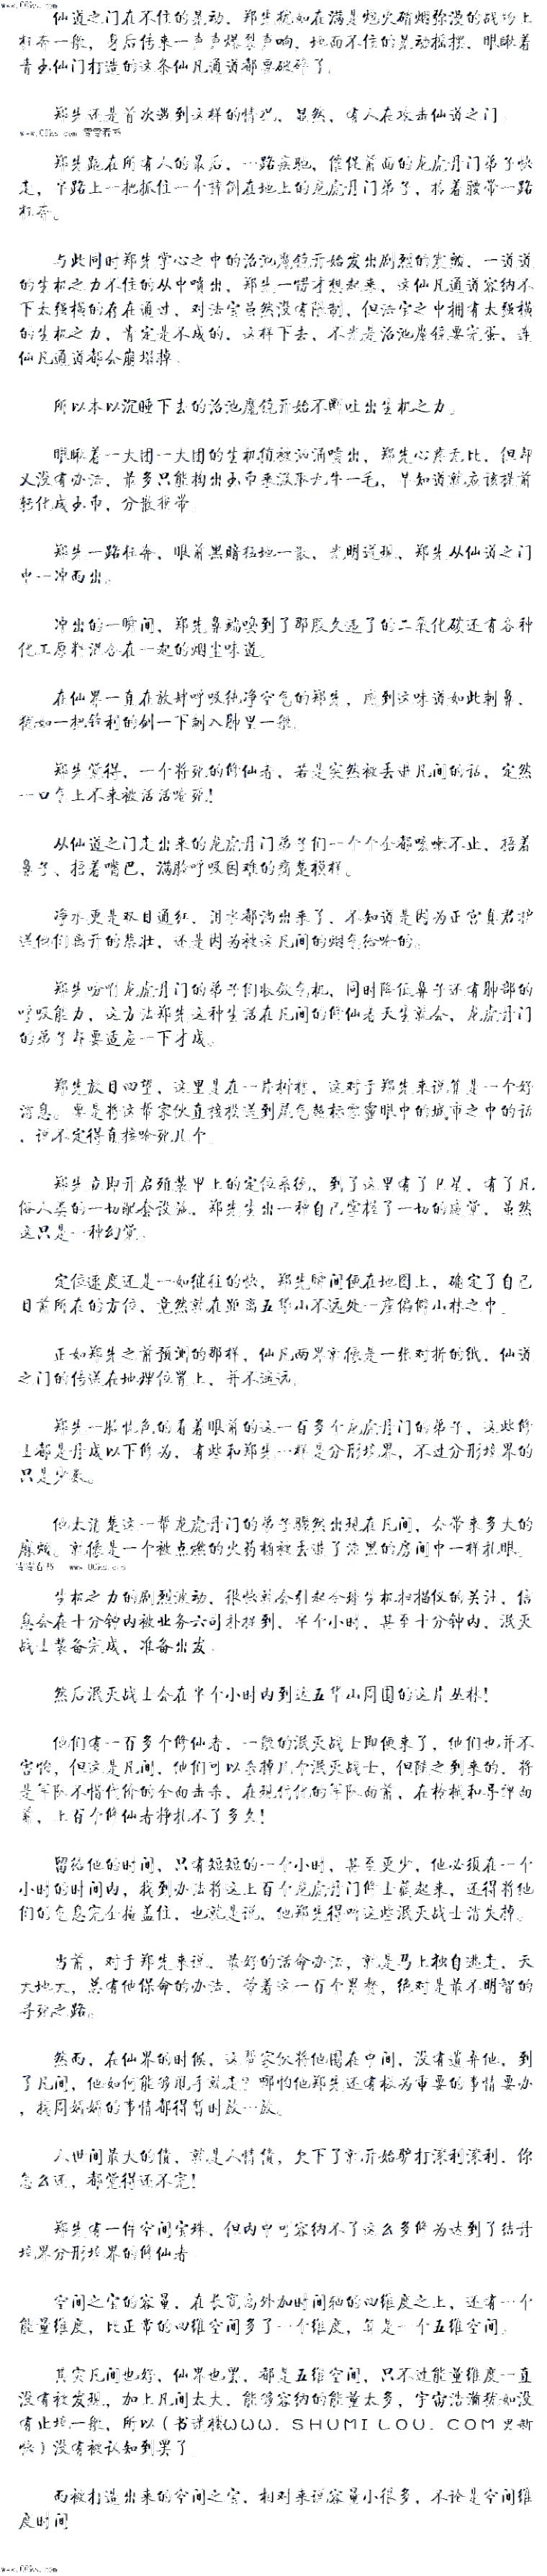 www.00ks.com
仙道之门在不住的晃动，郑先犹如在满是炮火硝烟弥漫的战场上
狂奔一般，身后传来一声声爆裂声响，地面不住的晃动摇摆，眼瞅着
青玉仙门打造的这条仙凡通道都要破碎了。
郑先还是首次遇到这样的情况，显然，有人在攻击仙道之门。
www.00ks.com 零零看书
郑先跑在所有人的最后，一路疾驰，催促前面的龙虎丹门弟子快
走，半路上一把抓住一个摔倒在地上的龙虎丹门弟子，拎着腰带一路
狂奔。
与此同时郑先掌心之中的沼池魔镜开始发出剧烈的震颤，一道道
的生机之力不住的从中喷出，郑先一愣才想起来，这仙凡通道容纳不
下太强横的存在通过，对法宝虽然没有限制，但法宝之中拥有太强横
的生机之力，肯定是不成的，这样下去，不光是沼池魔镜要完蛋，连
仙凡通道都会崩塌掉。
所以本以沉睡下去的沼池魔镜开始不断吐出生机之力。
眼瞅着一大团一大团的生机精被汹涌喷出，郑先心疼无比，但却
又没有办法，最多只能掏出玉币来汲取九牛一毛，早知道就应该提前
转化成玉币，分散携带。
郑先一路狂奔，眼前黑暗猛地一散，光明送现，郑先从仙道之门
中一冲而出。
冲出的一瞬间，郑先鼻端嗅到了那股久违了的二氧化碳还有各种
化工原料混合在一起的烟尘味道。
在仙界一直在放肆呼吸纯净空气的郑先，感到这味道如此刺鼻，
犹如一把锋利的剑一下刺入肺里一般。
郑先觉得，一个将死的修仙者，若是突然被丢进凡间的话，定然
一口气上不来被活活呛死！
从仙道之门走出来的龙虎丹门弟子们一个个全都咳嗽不止，捂着
鼻子、捂着嘴巴，满脸呼吸困难的痛楚模样。
净水更是双目通红，泪水都淌出来了，不知道是因为正宫真君护
送他们离开的悲壮，还是因为被这凡间的烟气给呛的。
郑先吩咐龙虎丹门的弟子们收敛气机，同时降低鼻子还有肺部的
呼吸能力，这方法郑先这种生活在凡间的修仙者天生就会，龙虎丹门
的弟子却要适应一下才成。
郑先放目四望，这里是在一片树林，这对于郑先来说算是一个好
消息。要是将这帮家伙直接投送到尾气超标雾霾眼中的城市之中的话
，说不定得直接呛死几个。
郑先立即开启殖装甲上的定位系统，到了这里有了卫星，有了凡
俗人类的一切配套设施，郑先生出一种自己掌握了一切的感觉，虽然
这只是一种幻觉。
定位速度还是一如继往的快，郑先瞬间便在地图上，确定了自己
目前所在的方位，竟然就在距离五华山不远处一座偏僻山林之中。
正如郑先之前预测的那样，仙凡两界就像是一张对折的纸，仙道
之门的传送在地理位置上，并不遥远。
郑先一脸忧色的看着眼前的这一百多个龙虎丹门的弟子，这些修
士都是丹成以下修为，有些和郑先一样是分形境界，不过分形境界的
只是少数。
他太清楚这一帮龙虎丹门的弟子骤然出现在凡间，会带来多大的
麻烦。就像是一个被点燃的火药桶被丢进了漆黑的房间中一样扎眼。
零零看书 www.00ks.com
生机之力的剧烈波动，很快就会引起全球生机扫描仪的关注，信
息会在十分钟内被业务六司补捉到，半个小时，甚至十分钟内，泯灭
战士装备完成，准备出发。
然后泯灭战士会在半个小时内到达五华山周围的这片丛林！
他们有一百多个修仙者，一般的泯灭战士即便来了，他们也并不
害怕，但这是凡间，他们可以杀掉几个泯灭战士，但随之到来的，将
是军队不惜代价的全面击杀，在现代化的军队面前，在枪械和导弹面
前，上百个修仙者挣扎不了多久！
留给他的时间，只有短短的一个小时，甚至更少，他必须在一个
小时的时间内，找到办法将这上百个龙虎丹门修士藏起来，还得将他
们的气息完全掩盖住，也就是说，他郑先得叫这些泯灭战士消失掉。
当前，对于郑先来说，最好的活命办法，就是马上独自逃走，天
大地大，总有他保命的办法，带着这一百个累赘，绝对是最不明智的
寻死之路。
然而，在仙界的时候，这帮家伙将他围在中间，没有遗弃他，到
了凡间，他如何能够甩手就走？哪怕他郑先还有极为重要的事情要办
，找周娇娇的事情都得暂时放一放。
人世间最大的债，就是人情债，欠下了就开始驴打滚利滚利，你
怎么还，都觉得还不完！
郑先有一件空间宝珠，但内中可容纳不了这么多修为达到了结丹
境界分形境界的修仙者。
空间之宝的容量，在长宽高外加时间轴的四维度之上，还有一个
能量维度，比正常的四维空间多了一个维度，算是一个五维空间。
其实凡间也好，仙界也罢，都是五维空间，只不过能量维度一直
没有被发现，加上凡间太大，能够容纳的能量太多，宇宙浩瀚犹如没
有止境一般，所以（书迷楼ＷＷＷ．ＳＨＵＭＩＬＯＵ．ＣＯＭ更新
快）没有被认知到罢了。
而被打造出来的空间之宝，相对来说容量小很多，不论是空间维
度时间
www.00ks.com